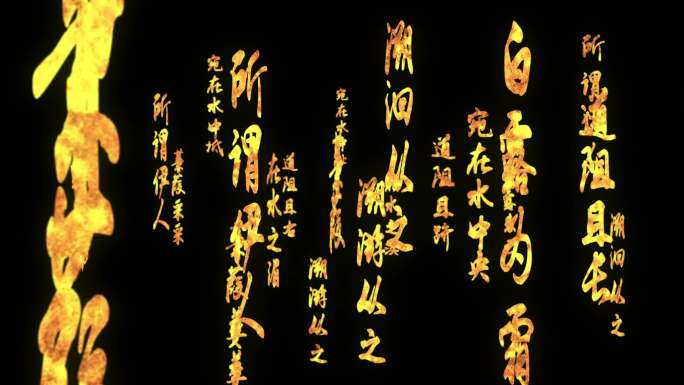 溯洄从之
所谓
道阻且长
白露为霜
宛在水中央
道阻且跻
溯洄从之
溯游从之
宛在水中
溯游从之
道阻且右
在水之湄
所谓伊人
蒹葭萋萋
宛在水中坻
蒹葭采采
所谓伊人